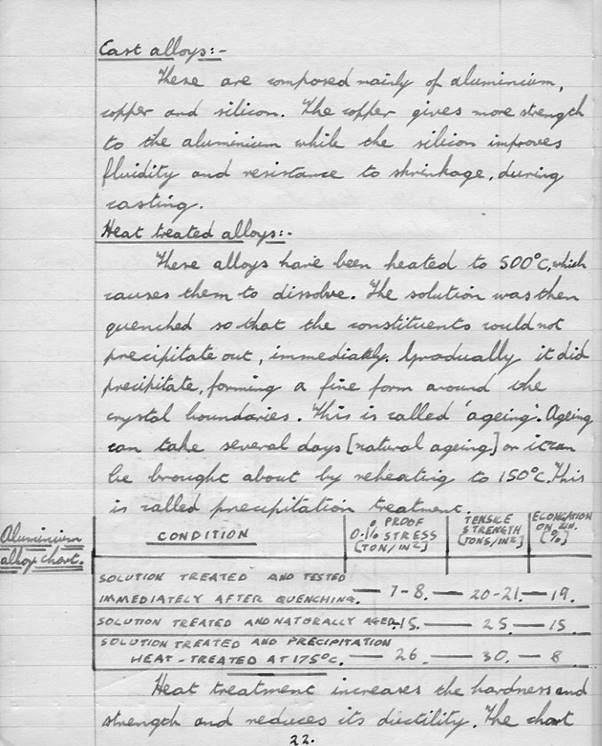 Cast alloys:-
These are composed mainly of aluminium,
copper and silicon. The copper gives more strength
to the aluminium while the silicon improves
fluidity and resistance to shrinkage, during
casting.
Heat treated alloys:-
These alloys have been heated to 500°C, which
causes them to dissolve. The solution was then
quenched so that the constituents could not
precipitate out, immediately. Gradually it did
precipitate, forming a fine form around the
crystal boundaries. This is called 'ageing'. Ageing
can take several days [natural ageing] or it can
be brought about by reheating to 150°C. This
is called precipitation treatment.
Aluminium
alloy chart.
CONDITION
0.1% PROOF STRESS [TON/IN²]
TENSILE STRENGTH [TONS/IN²]
ELONGATION ON 2IN. [%]
SOLUTION TREATED AND TESTED
IMMEDIATELY AFTER QUENCHING. — 7-8. — 20-21. — 19.
SOLUTION TREATED AND NATURALLY AGED. — 15. — 25 — 15
SOLUTION TREATED AND PRECIPITATION
HEAT-TREATED AT 175°C. — 26 — 30. — 8
Heat treatment increases the hardness and
strength and reduces its ductility. The chart
22.